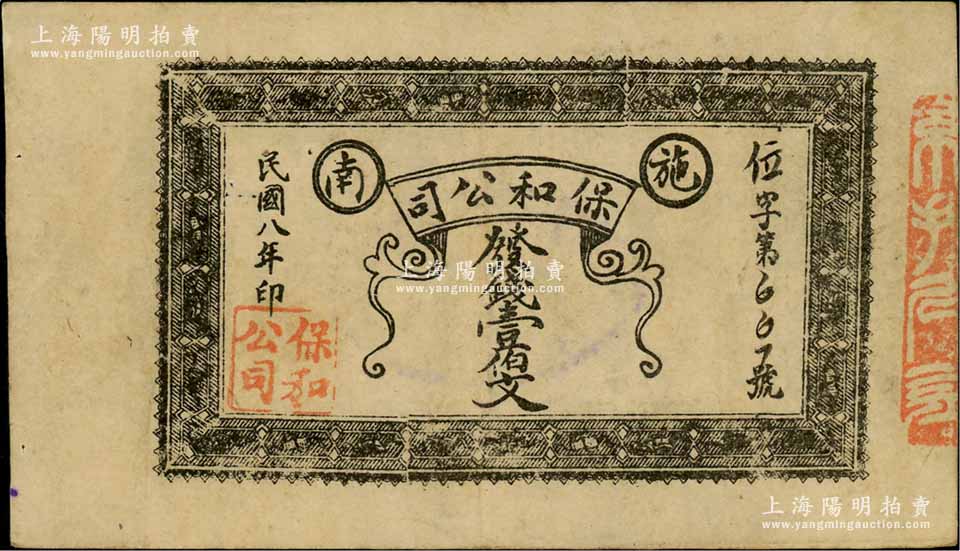 上海陽明拍賣
www.yangmingauction.com
施南
保和公司
發錢壹佰文
位字第
號
民國八年印
保和公司
上海陽明拍賣
www.yangmingauction.com
上海陽明拍賣
www.yangmingauction.com